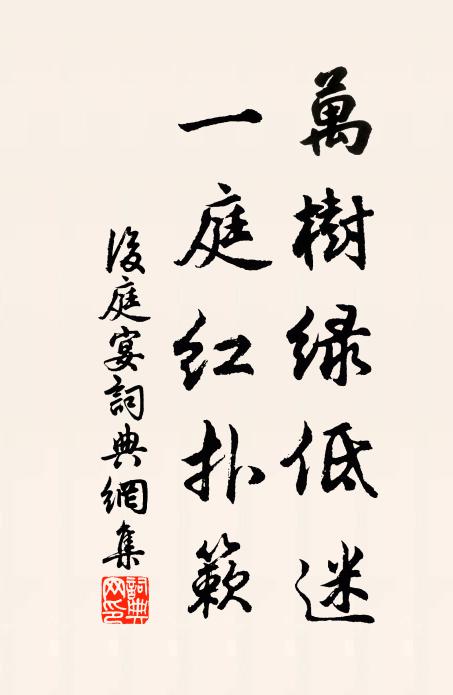 萬樹綠低迷
一庭紅扑簌
後庭宴詞典網集
詞典網印